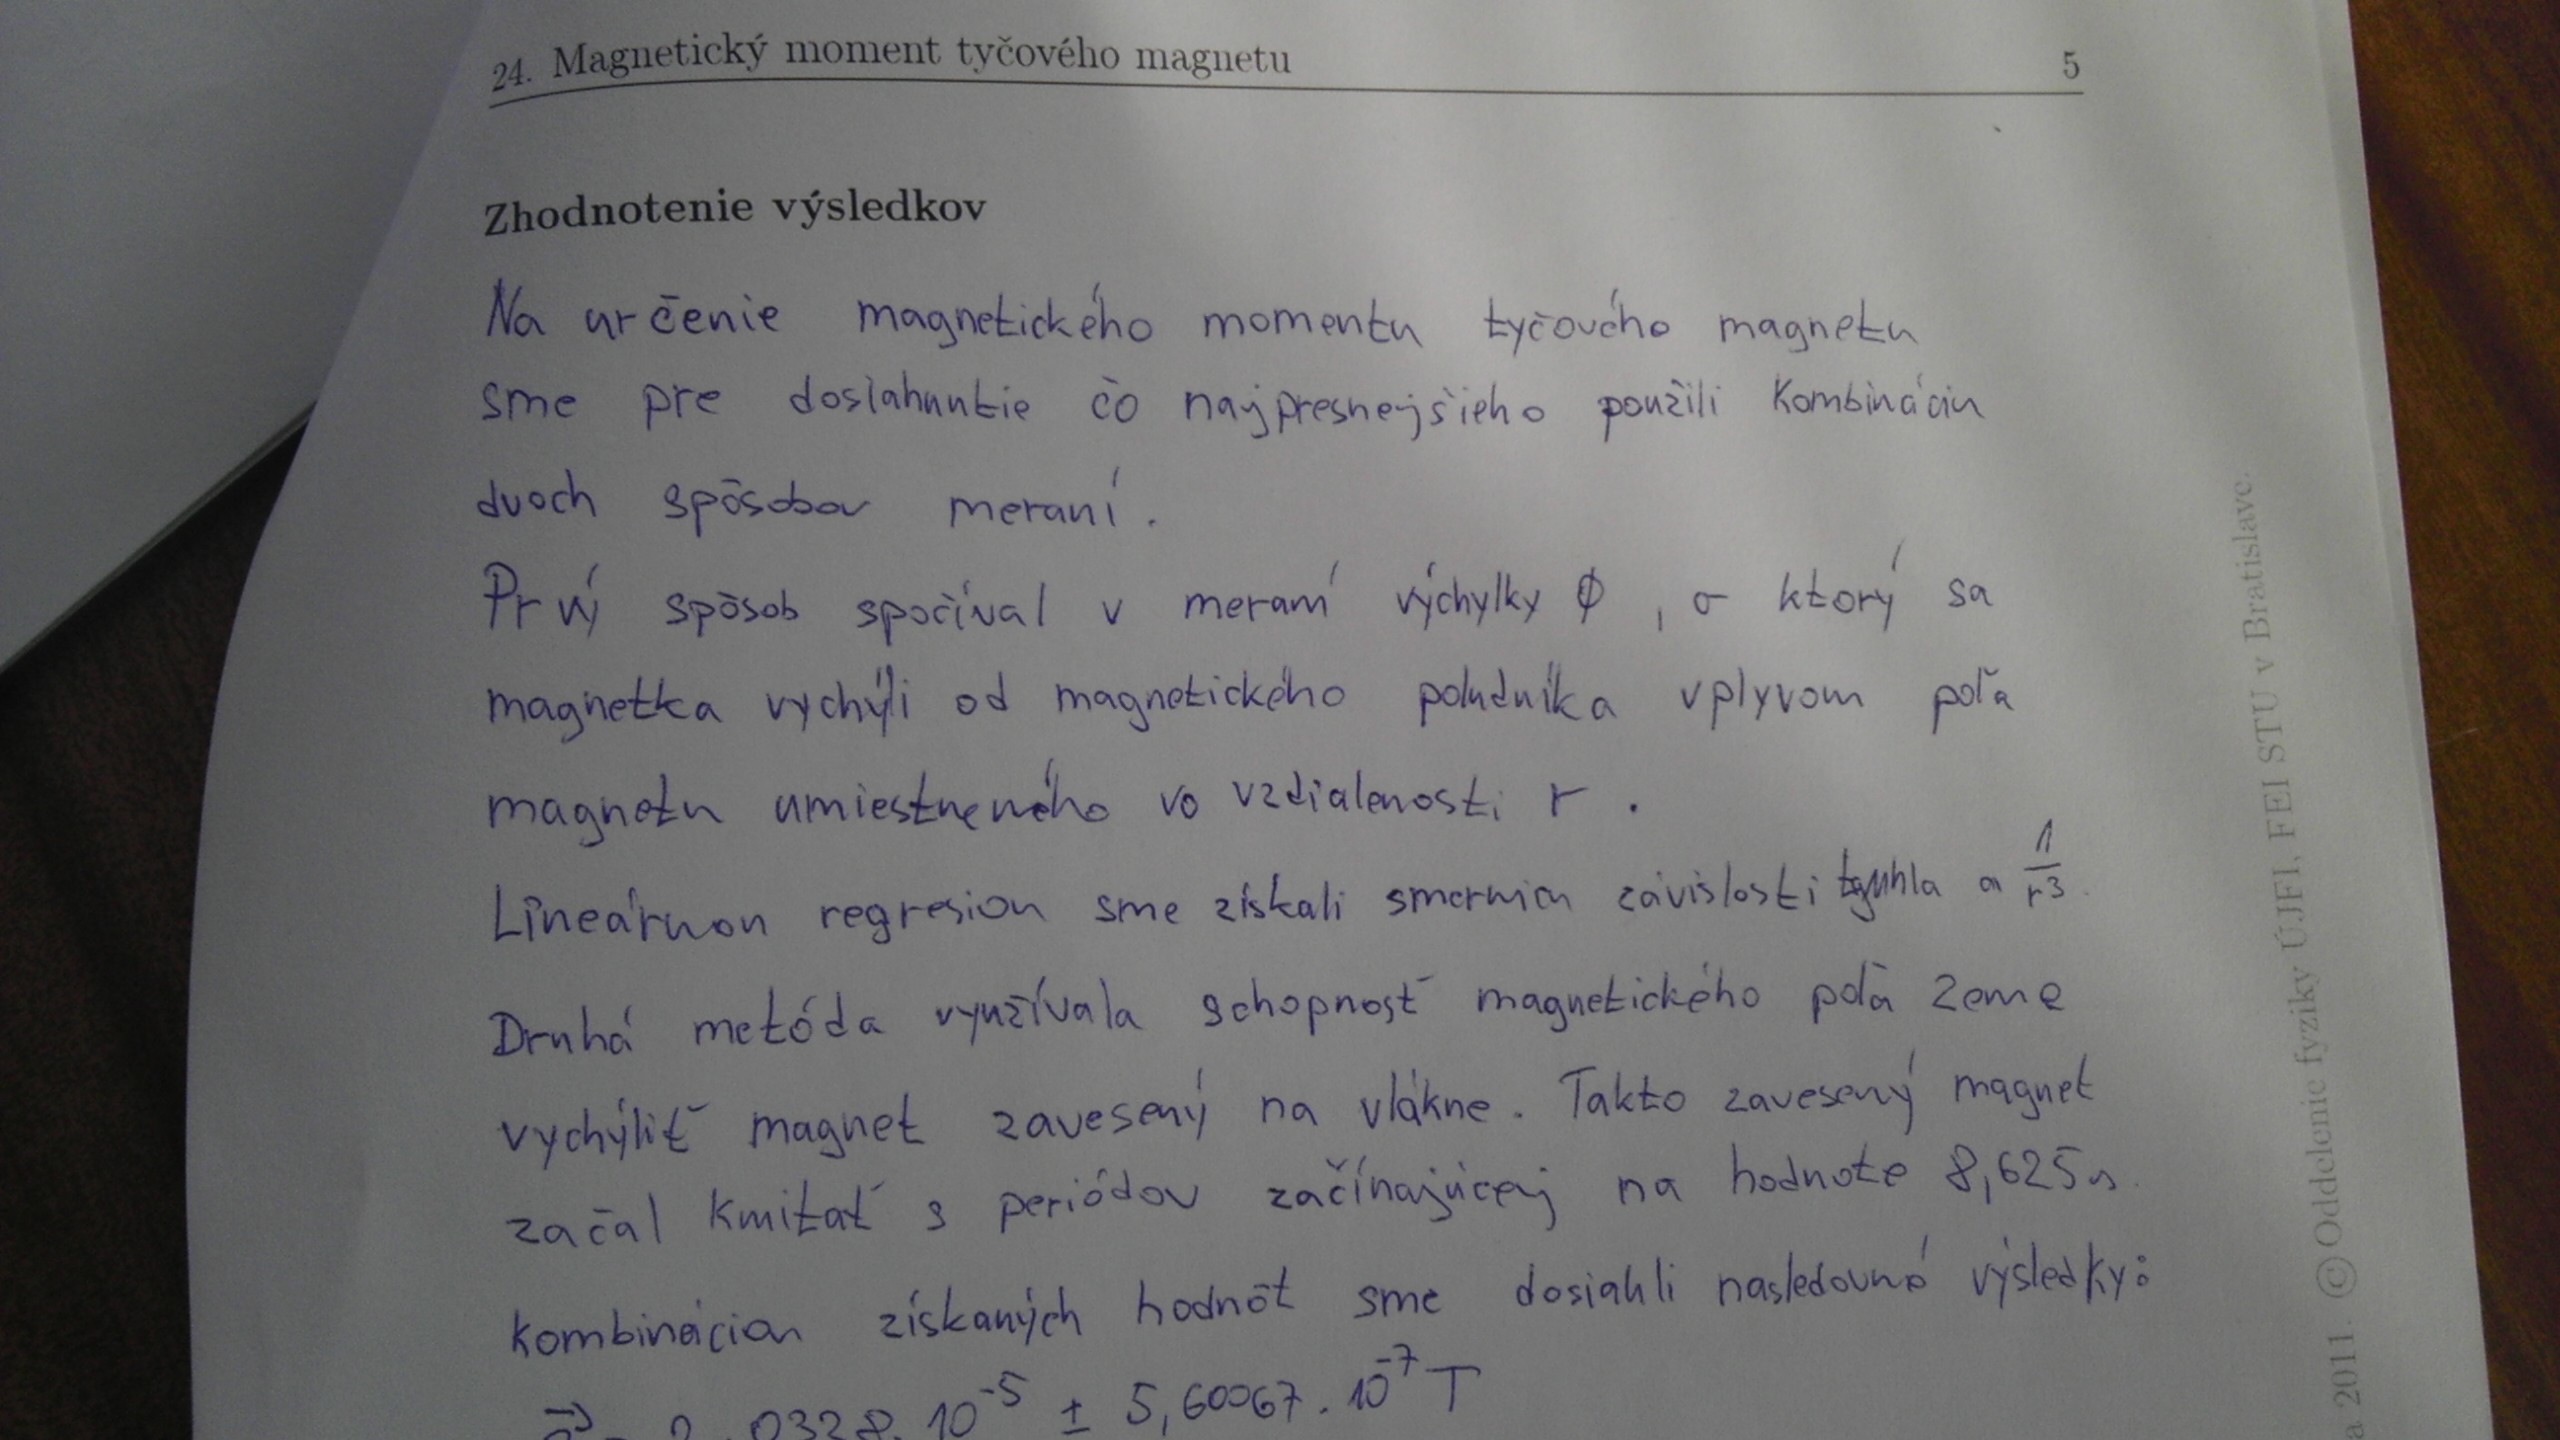 24. Magnetický moment tyčového magnetu 5
Zhodnotenie výsledkov
Na určenie magnetického momentu tyčového magnetu
sme pre dosiahnutie čo najpresnejšieho použili kombináciu
dvoch spôsobov meraní.
Prvý spôsob spočíval v meraní výchylky ϕ, o ktorý sa
magnetka vychýli od magnetického poludníka vplyvom poľa
magnetu umiestneného vo vzdialenosti r.
Lineárnou regresiou sme získali smernicu závislosti tg uhla a 1/r³.
Druhá metóda využívala schopnosť magnetického poľa Zeme
vychýliť magnet zavesený na vlákne. Takto zavesený magnet
začal kmitať s periódou začínajúcej na hodnote 8,625 s.
kombináciou získaných hodnôt sme dosiahli nasledovné výsledky:
0328.10⁻⁵ ± 5,60067.10⁻⁷ T
a 2011. © Oddelenie fyziky ÚJFI, FEI STU v Bratislave.